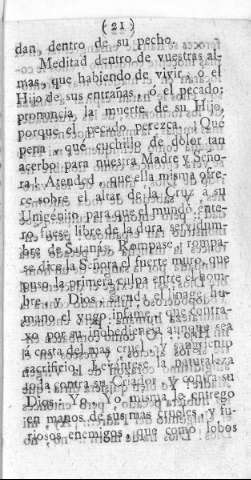 (21)
dan, dentro de su pecho.
Meditad dentro de vuestras al-
mas, que habiendo de vivir, ó el
Hijo de sus entrañas, ó el pecado;
pronuncia la muerte de su Hijo,
porque el pecado perezca. ¡Qué
pena, qué cuchillo de dolor tan
acerbo para nuestra Madre y Seño-
ra! Atended, que ella misma ofre-
ce sobre el altar de la Cruz a su
Unigénito para que el mundo ente-
ro fuese libre de la dura servidum-
bre de Satanás. Rompase, rompa-
se dice la Señora el fuerte muro, que
puso la primera culpa entre el hom-
bre, y Dios: sacuda el linage hu-
mano el yugo infame, que contra-
xo por su inobediencia aunque sea
á costa del mas cruel, y sangriento
sacrificio. Levántese la naturaleza
toda contra su Criador, y contra su
Dios: Yo, Yo misma le entrego
en manos de sus mas crueles, y fu-
riosos enemigos, que como lobos